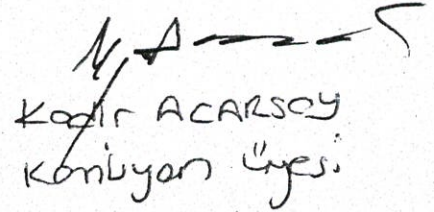 Kadir ACARSOY
Komisyon Üyesi